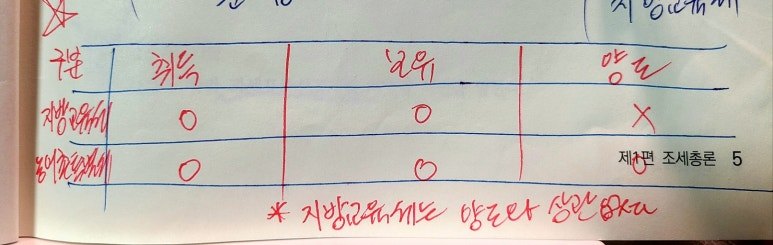 지방교육세
구분 취득 보유 양도
지방교육세 O O X
농어촌특별세 O O O
제1편 조세총론 5
* 지방교육세는 양도와 상관 없다